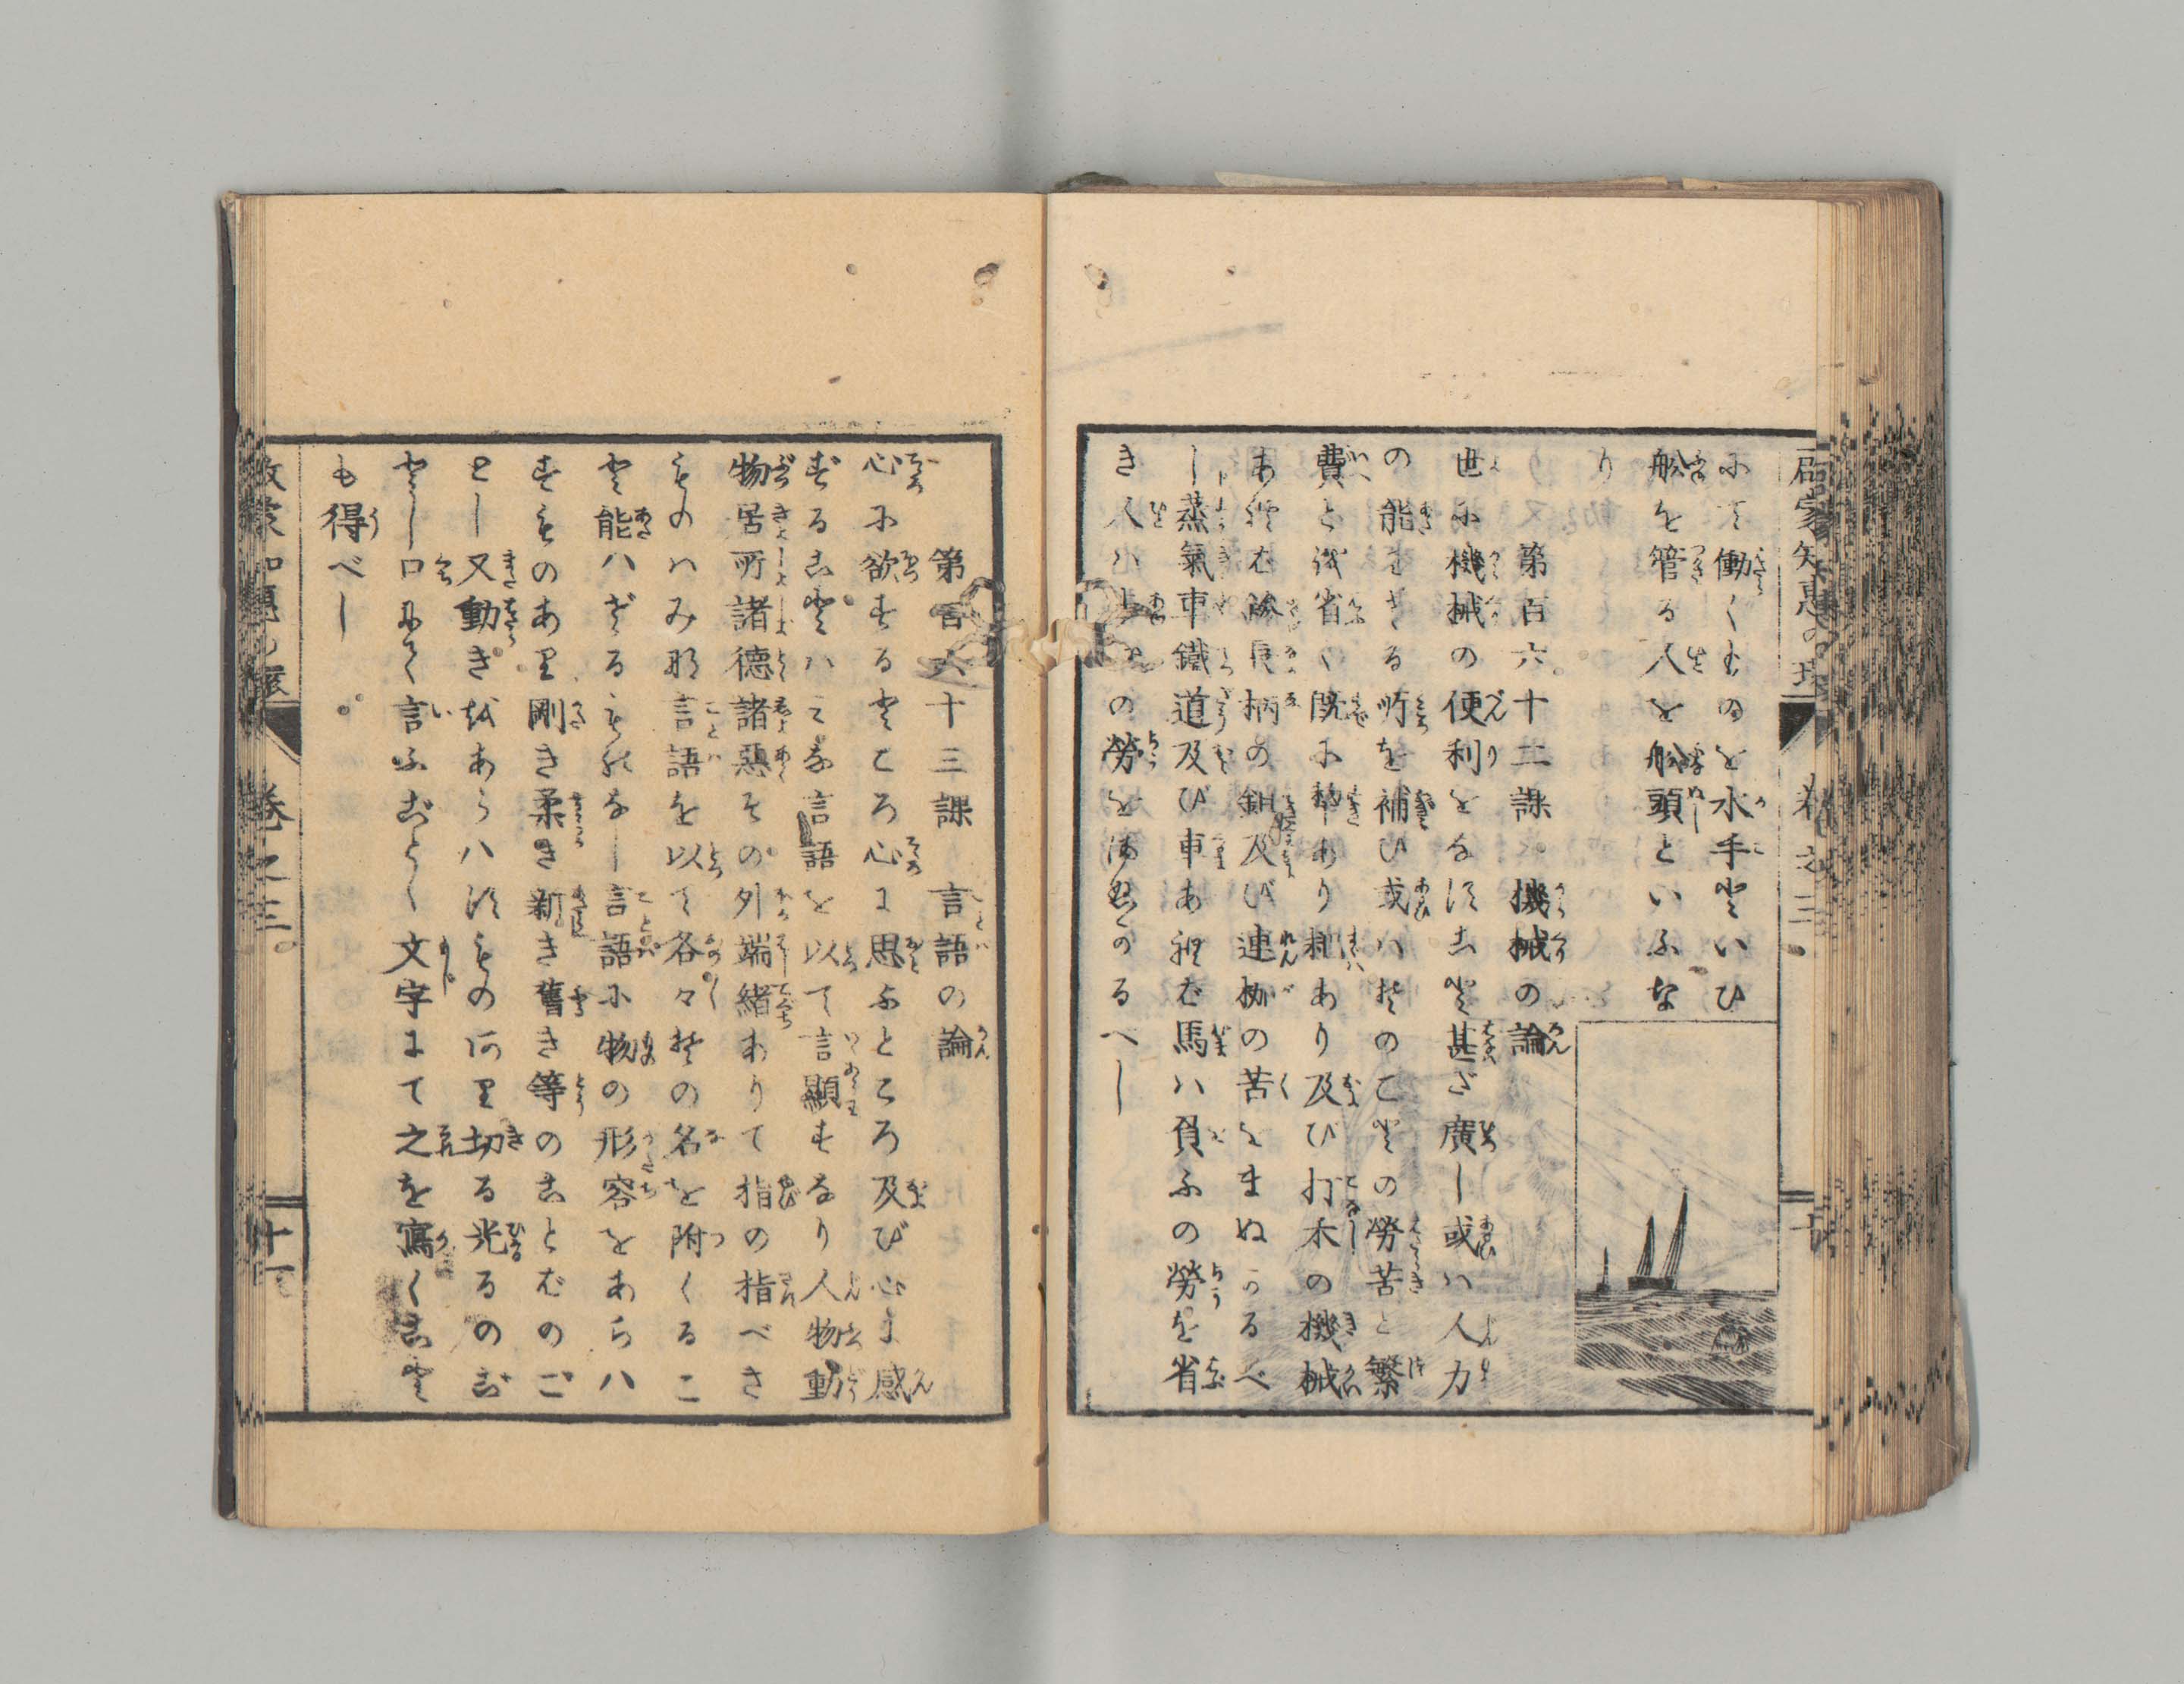 啓蒙知惠の環 卷之三 十
にて働くものを水手といひ
舩を管る人を舩頭といふな
り
第百六十二課 機械の論
世に機械の便利をなすこと甚ざ廣し或ハ人力
の能はざる所を補ひ或ハその己との勞苦と繁
費とを省く既に犂あり耙あり及び打禾の機械
あれば長柄の鉏及び連枷の苦をまぬかるべ
し蒸氣車鐵道及び車あれば馬ハ負ふの勞を省
き人ハ歩の勞を免かるべし
第百六十三課 言語の論
心に欲するところ心に思ふところ及び心に感
ずることハみな言語を以て言顯すなり人物動
物居所諸德諸惡その外端緒ありて指の指べき
ものハみな言語を以て各々その名を附くるこ
と能ハざるものなし言語に物の形容をあらハ
すものあり剛き柔き新き舊き等のことばのご
とし又動きをあらハすものあり切る光るのご
とし口にて言ふごとく文字にて之を寫くこと
も得べし
啓蒙知惠の環 卷之三 十一